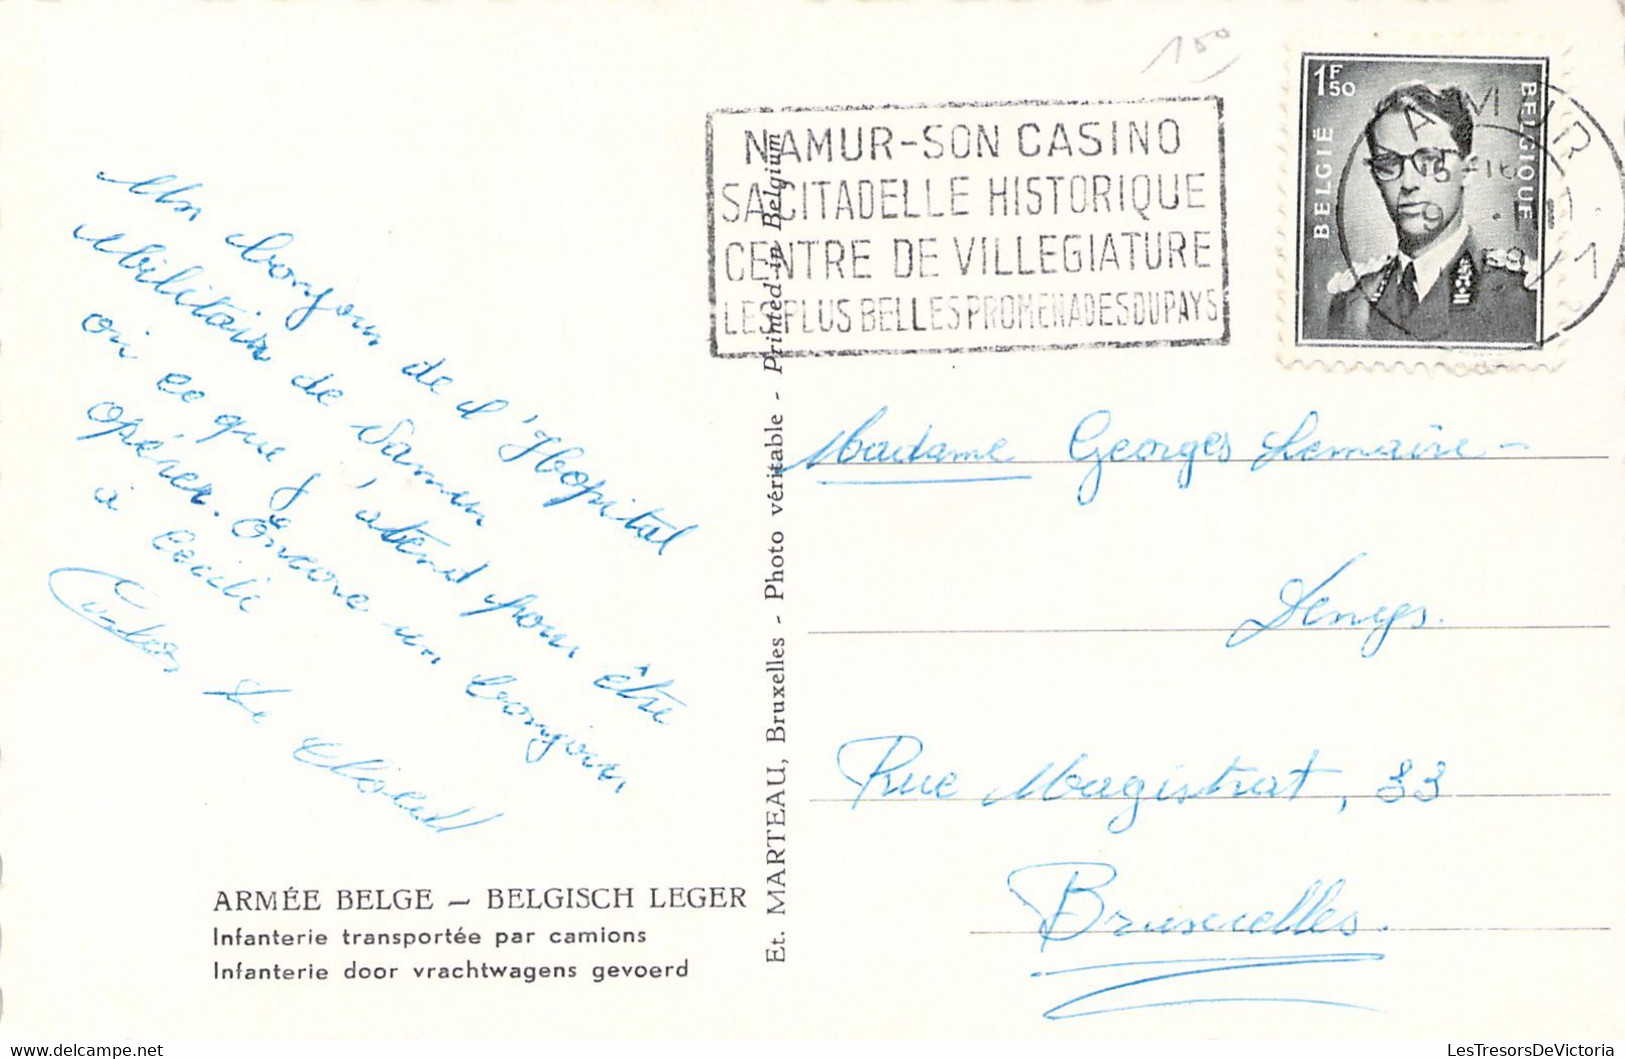 150
NAMUR-SON CASINO
SA CITADELLE HISTORIQUE
CENTRE DE VILLEGIATURE
LES PLUS BELLES PROMENADES DU PAYS
1F50
BELGIË
BELGIQUE
NAMUR
15-16
9
59
1
Un bonjour de l'Hopital
Militair de Namur
oú ce que j'attend pour être
opérer. Encore un bonjour
à Cecile
Madame Georges Lemaire -
Rue Magistrat, 33
Bruxelles.
ARMÉE BELGE – BELGISCH LEGER
Infanterie transportée par camions
Infanterie door vrachtwagens gevoerd
Et. MARTEAU, Bruxelles - Photo véritable - Printed in Belgium
www.delcampe.net
LesTresorsDeVictoria